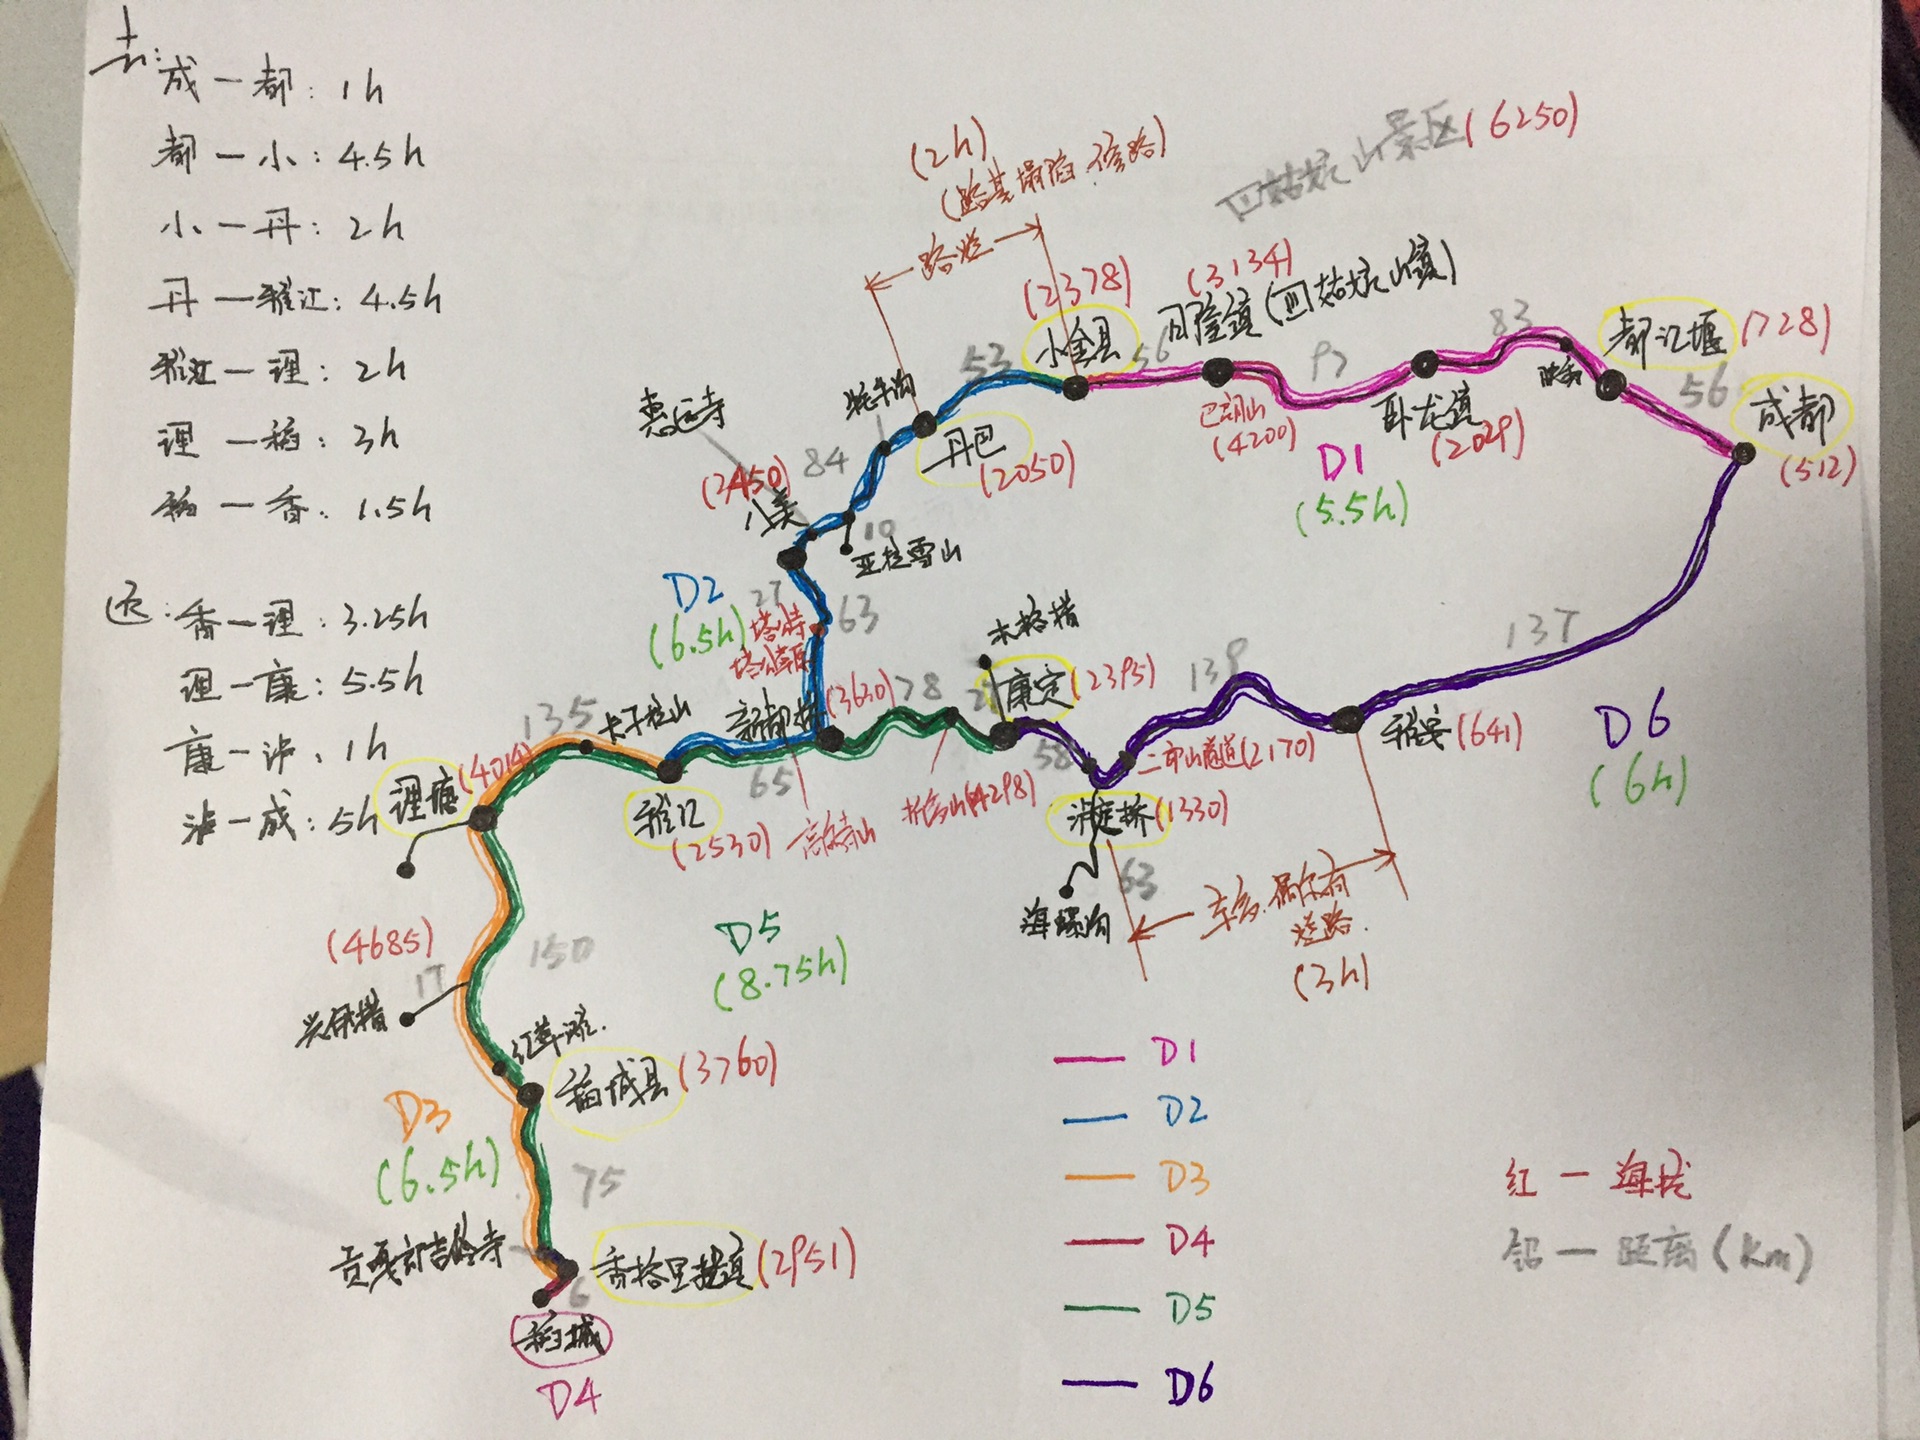 去:
成一都: 1h
都一小: 4.5h
小一丹: 2h
丹一雅江: 4.5h
雅江一理: 2h
理一稻: 3h
稻一香: 1.5h
还:
香一理: 3.25h
理一康: 5.5h
康一泸: 1h
泸一成: 5h
(2h)
(路基塌陷.修路)
路烂
四姑娘山景区(6250)
(2378)
小金县
(3134)
日隆镇(四姑娘山镇)
53
56
93
83
映秀
都江堰(728)
56
成都
(512)
巴朗山
(4200)
卧龙镇
(2029)
D1
(5.5h)
惠远寺
牦牛沟
丹巴
(2050)
84
(3450)
八美
10
亚拉雪山
D2
(6.5h)
27
63
塔公寺
塔公草原
木格措
新都桥(3630)
78
康定(2395)
138
137
D6
(6h)
雅安(641)
二郎山隧道(2170)
58
泸定桥(1330)
63
海螺沟
车多.偶尔有
烂路.
(3h)
135
卡子拉山
理塘(4014)
雅江
(2530)
65
高尔寺山
折多山(4298)
D5
(8.75h)
(4685)
17
兴伊措
150
红草滩.
稻城县(3760)
D3
(6.5h)
75
贡嘎郎吉岭寺
香格里拉镇(2951)
6
稻城
D4
D1
D2
D3
D4
D5
D6
红一海拔
铅一距离(Km)